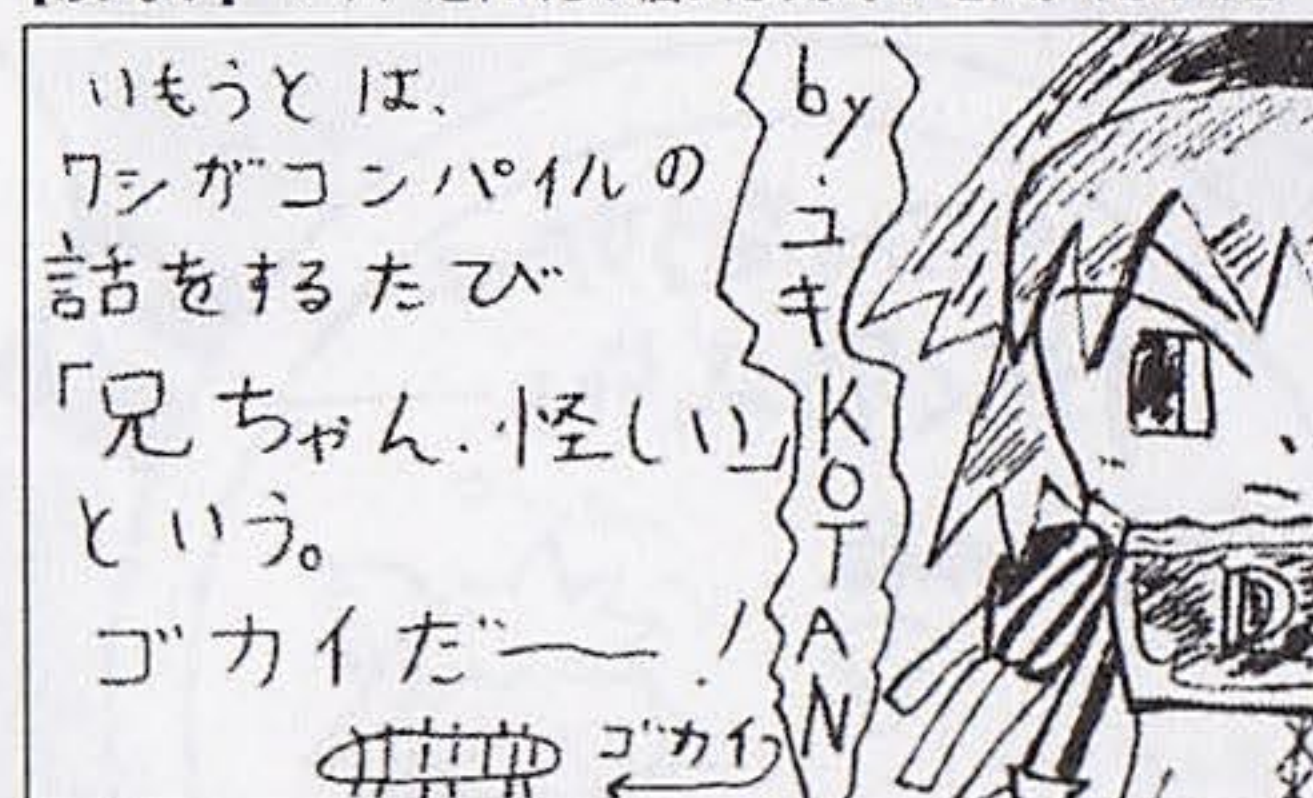 いもうとは、
ワシがコンパイルの
話をするたび
「兄ちゃん・怪しい」
という。
ゴカイだ〜!
ゴカイ
by・ユキ KOTAN
D